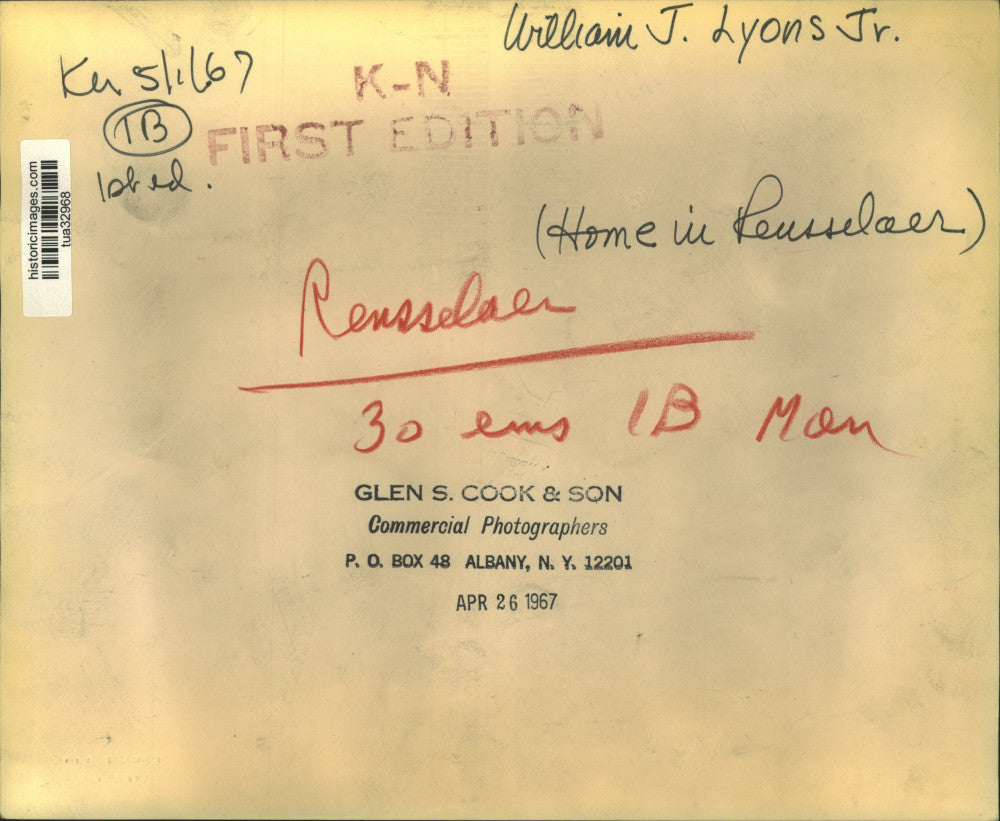 William J. Lyons Jr.
Kn 5/1/67
K-N
1B
FIRST EDITION
1st ed.
historicimages.com
tua32968
(Home in Rensselaer)
Rensselaer
30 ems 1B Mon
GLEN S. COOK & SON
Commercial Photographers
P. O. BOX 48 ALBANY, N. Y. 12201
APR 26 1967